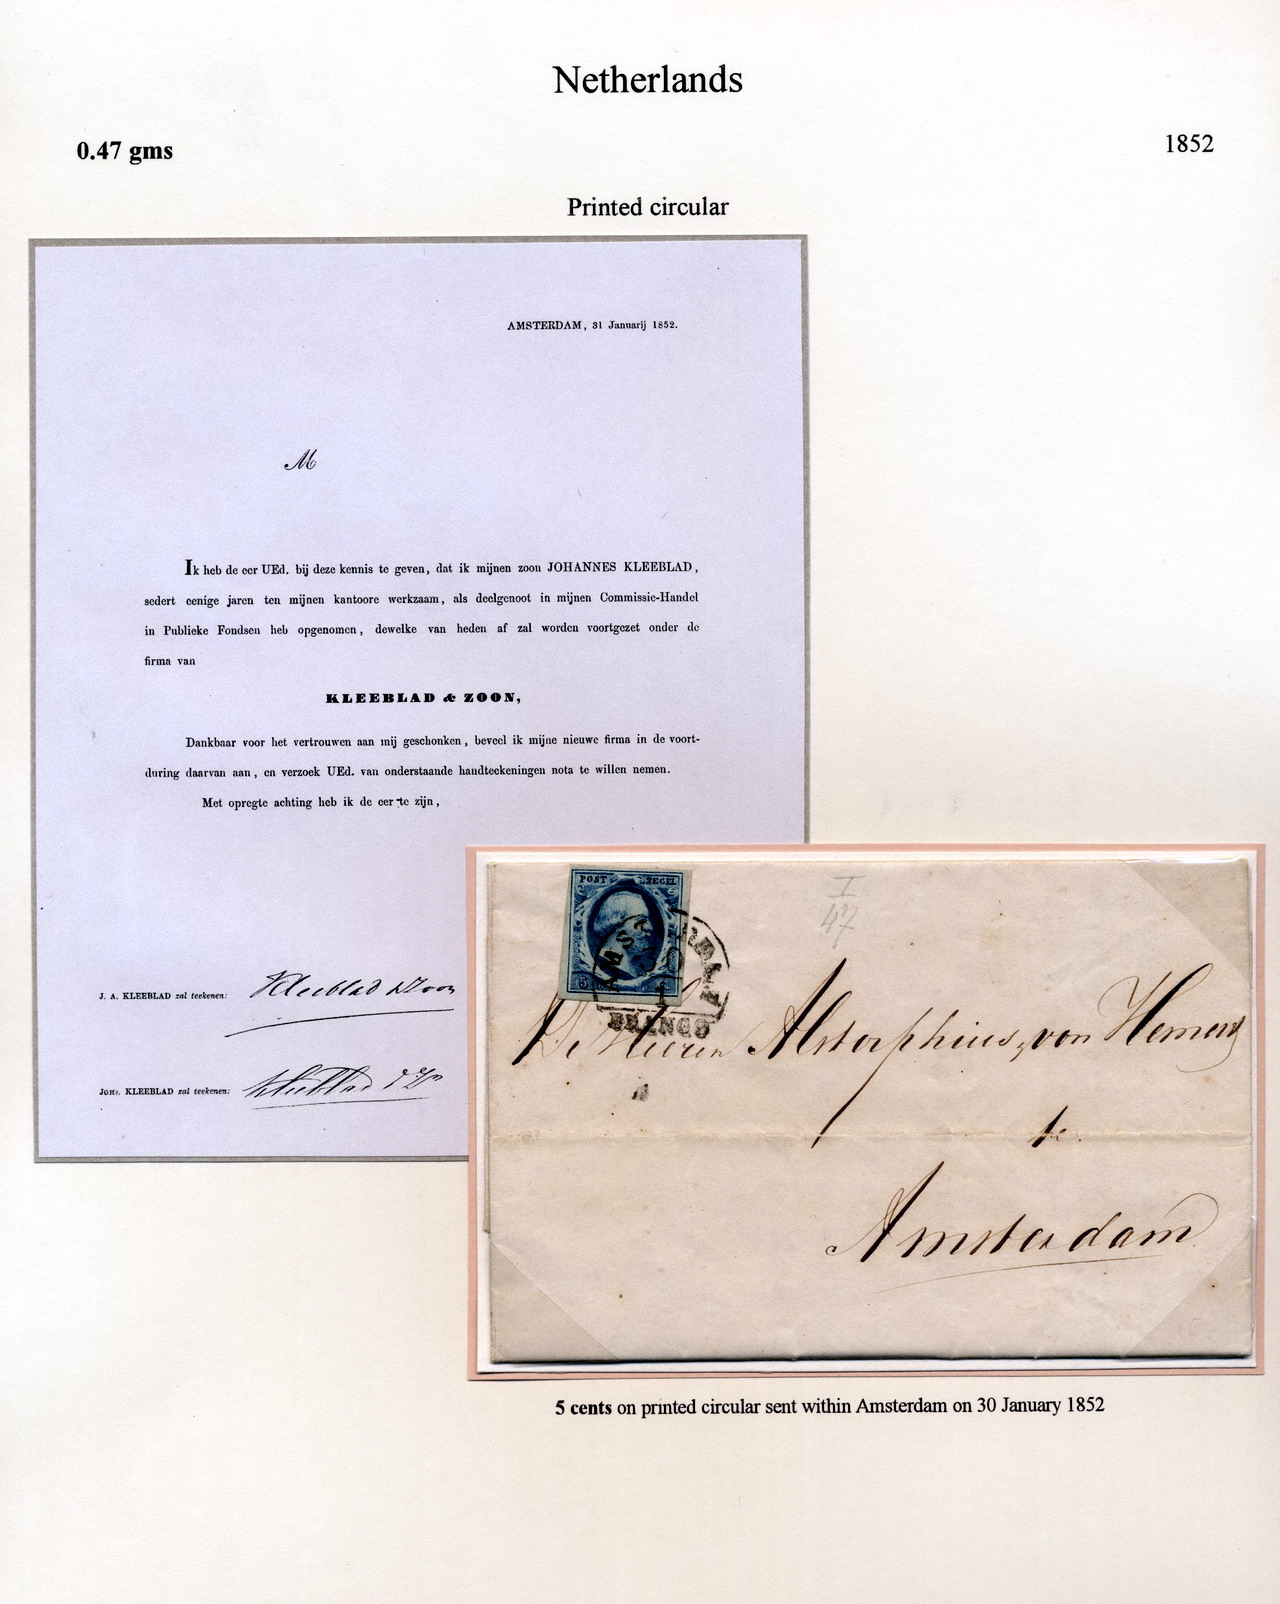 Netherlands
0.47 gms
1852
Printed circular
AMSTERDAM, 31 Januarij 1852.
M
Ik heb de eer UEd. bij deze kennis te geven, dat ik mijnen zoon JOHANNES KLEEBLAD,
sedert eenige jaren ten mijnen kantoore werkzaam, als deelgenoot in mijnen Commissie-Handel
in Publieke Fondsen heb opgenomen, dewelke van heden af zal worden voortgezet onder de
firma van
KLEEBLAD & ZOON,
Dankbaar voor het vertrouwen aan mij geschonken, beveel ik mijne nieuwe firma in de voort-
during daarvan aan, en verzoek UEd. van onderstaande handteekeningen nota te willen nemen.
Met opregte achting heb ik de eer te zijn,
J. A. KLEEBLAD zal teekenen: Kleeblad & Zoon
JOHS. KLEEBLAD zal teekenen: Kleeblad & Zn
POST ZEGEL
5
AMSTERDAM
FRANCO
I
47
De Heeren Alstorphius & von Hemert
te
Amsterdam
5 cents on printed circular sent within Amsterdam on 30 January 1852